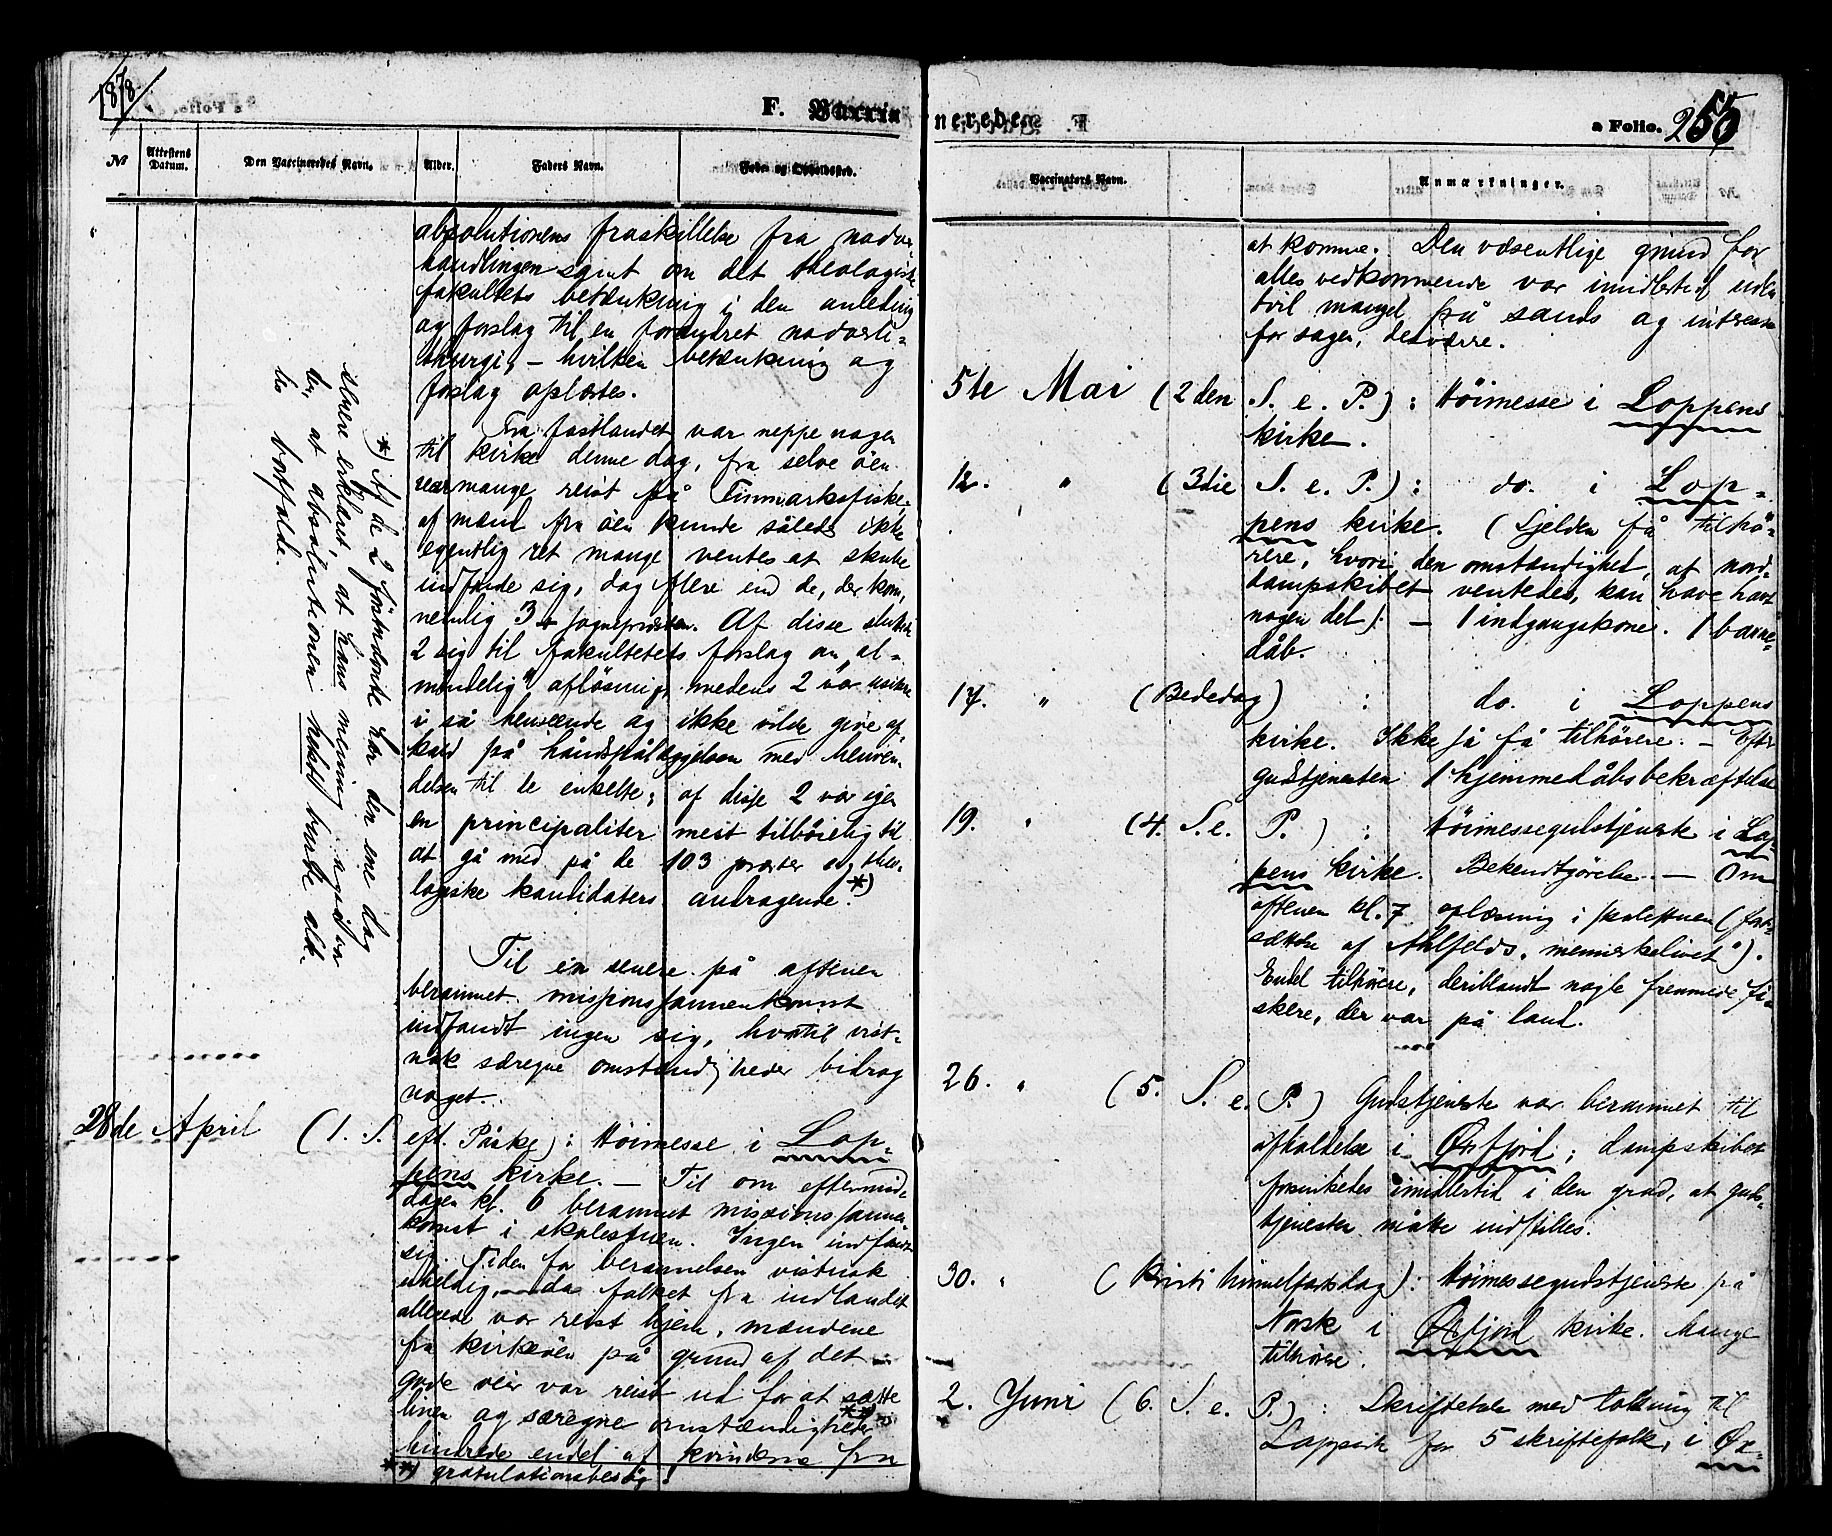 1878.
F. Vaccin
No
Attestens Datum.
Den Vaccineredes Navn.
Alder.
Faders Navn.
Føde og Opholdssted.
absolutionens fraskillelse fra nadver-
handlingen samt om det theologiske
fakultets betænkning i den anledning
og forslag til en forandret nadverli-
thurgi, – hvilken betænkning og
forslag oplæstes.
Fra fastlandet var neppe nogen
til kirke denne dag, fra selve øen
var mange reist på Finmarksfiske;
af mænd fra øen kunde således ikke
egentlig ret mange ventes at skulle
indfinde sig, dog flere end de, der kom,
nemlig 3 + sognepræsten. Af disse sluttede
2 sig til fakultetets forslag om „al-
mindelig" afløsning, medens 2 var usikre
i så henseende og ikke vilde give af-
kald på håndspålæggelsen med henven-
delsen til de enkelte; af disse 2 var igjen
en principaliter mest tilbøielig til
at gå med på de 103 præster og theo-
logiske kandidaters andragende.*)
Til en senere på aftenen
berammet missionssammenkomst
indfandt ingen sig, hvortil vist-
nok særegne omstændigheder bidrog
noget.
*) Af de 2 førstnævnte har den ene dog
senere erklæret at hans mening egentlig var
den, at absolutionen helst burde aldeles
bortfalde.
28de April (1. S.
eft. Påske): Høimesse i Lop-
pens kirke. – Til om eftermid-
dagen kl. 6 berammet missionssammen-
komst i skolestuen. Ingen indfandt
sig. Tiden for berammelsen vistnok
uheldig, da folket fra indlandet
allerede var reist hjem, mændene
fra kirkeøen på grund af det
gode veir var reist ud for at sætte
linen og særegne omstændigheder**)
hindrede endel af kvinderne fra
**) gratulationsbesøg!
nerede.
a Folio. 255
Vaccinators Navn.
Anmærkninger.
at komme. Den væsentlige grund for
alles vedkommende var imidlertid uden
tvil mangel på sands og interesse
for sagen, desværre.
5te Mai (2den S. e. P.): Høimesse i Loppens
kirke.
12. " (3die S. e. P.): do. i Lop-
pens kirke. (Sjelden få tilhø-
rere, hvori den omstændighed, at nord-
dampskibet ventedes, kan have havt
nogen del). – 1 indgangskone. 1 barne-
dåb.
17. " (Bededag) : do. i Loppens
kirke. Ikke så få tilhørere. – Efter
gudstjenesten 1 hjemmedåbsbekræftelse
19. " (4. S. e. P.) : Høimessegudstjeneste i Lop-
pens kirke. Bekendtgørelse. – Om
aftenen kl. 7 oplæsning i skolestuen (fort-
sættelse af Ahlfelds „menneskelivet").
Endel tilhørere, deriblandt nogle fremmede fi-
skere, der var på land.
26. " (5. S. e. P.) Gudstjeneste var berammet til
afholdelse i Øxfjord; dampskibet
forsinkedes imidlertid i den grad, at guds-
tjenesten måtte indstilles.
30. " (Kristi himmelfartsdag): Høimessegudstjeneste på
Norsk i Øxfjord kirke. Mange
tilhørere.
2. Juni (6. S. e. P.) : Skriftetale med tolkning til
Lappisk for 5 skriftefolk, i Øx-